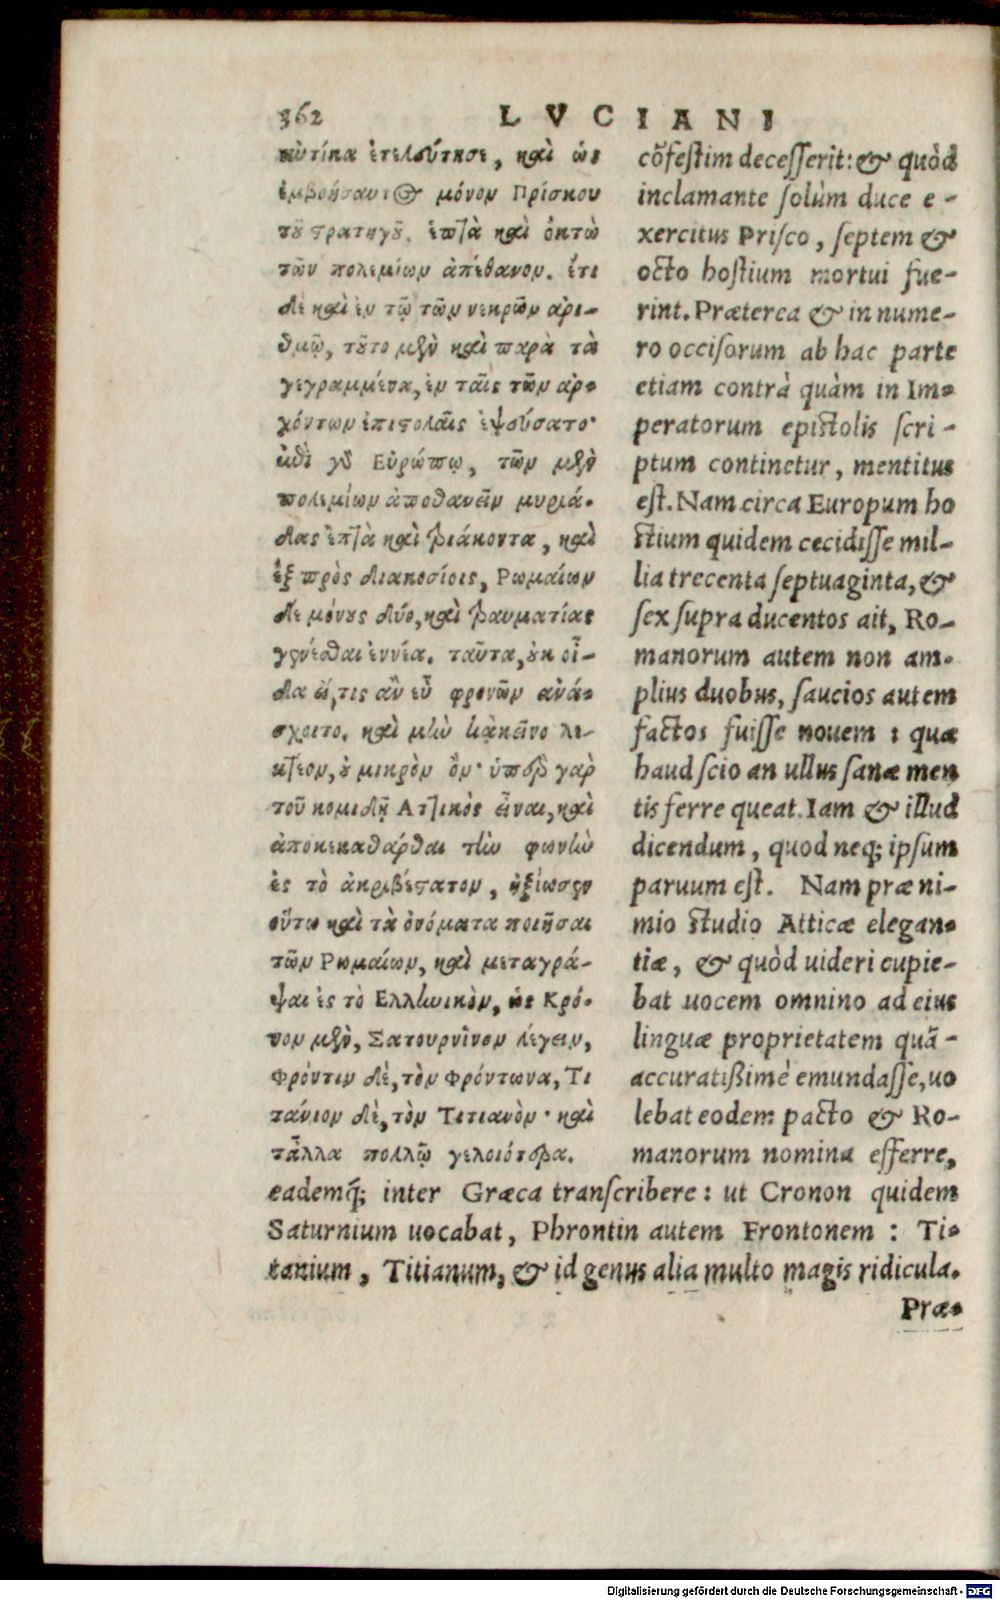 362 LVCIANI
αὐτίκα ἐτελεύτησε, καὶ ὡς
ἐμβοήσαντος μόνον Πρίσκου
τοῦ στρατηγοῦ, ἑπτὰ καὶ ὀκτὼ
τῶν πολεμίων ἀπέθανον. ἔτι
δὲ καὶ ἐν τῷ τῶν νεκρῶν ἀρι-
θμῷ, τοῦτο μὲν καὶ παρὰ τὰ
γεγραμμένα, ἐν ταῖς τῶν ἀρ-
χόντων ἐπιστολαῖς ἐψεύσατο·
ἐπὶ γὰρ Εὐρώπῳ, τῶν μὲν
πολεμίων ἀποθανεῖν μυριά-
δας ἑπτὰ καὶ τριάκοντα, καὶ
ἓξ πρὸς διακοσίοις, Ρωμαίων
δὲ μόνους δύο, καὶ τραυματίας
γενέσθαι ἐννέα. ταῦτα, οὐκ οἶ-
δα εἴ, τις ἂν εὖ φρονῶν ἀνά-
σχοιτο. καὶ μὴν κἀκεῖνο λε-
κτέον, οὐ μικρὸν ὄν· ὑπὸ γὰρ
τοῦ κομιδῇ Ατ]ικὸς εἶναι, καὶ
ἀποκεκαθάρθαι τὴν φωνὴν
ἐς τὸ ἀκριβέστατον, ἠξίωσεν
οὕτω καὶ τὰ ὀνόματα ποιῆσαι
τῶν Ρωμαίων, καὶ μεταγρά-
ψαι ἐς τὸ Ελληνικὸν, ὡς Κρό-
νον μὲν, Σατουρνῖνον λέγειν,
Φρόντιν δὲ, τὸν Φρόντωνα, Τι
τάνιον δὲ, τὸν Τιτιανὸν· καὶ
τἆλλα πολλῷ γελοιότερα.
cõfestim decesserit: & quòd
inclamante solùm duce e-
xercitus Prisco, septem &
octo hostium mortui fue-
rint. Præterea & in nume-
ro occisorum ab hac parte
etiam contrà quàm in Im-
peratorum epistolis scri-
ptum continetur, mentitus
est. Nam circa Europum ho
stium quidem cecidisse mil-
lia trecenta septuaginta, &
sex supra ducentos ait, Ro-
manorum autem non am-
plius duobus, saucios autem
factos fuisse nouem: quæ
haud scio an ullus sanæ men
tis ferre queat. Iam & illud
dicendum, quod neq; ipsum
paruum est. Nam præ ni-
mio studio Atticæ elegan-
tiæ, & quòd uideri cupie-
bat uocem omnino ad eius
linguæ proprietatem quã-
accuratißimè emundasse, uo
lebat eodem pacto & Ro-
manorum nomina efferre,
eademq́; inter Græca transcribere: ut Cronon quidem
Saturnium uocabat, Phrontin autem Frontonem: Ti-
tanium, Titianum, & id genus alia multo magis ridicula.
Præ-
Digitalisierung gefördert durch die Deutsche Forschungsgemeinschaft - DFG